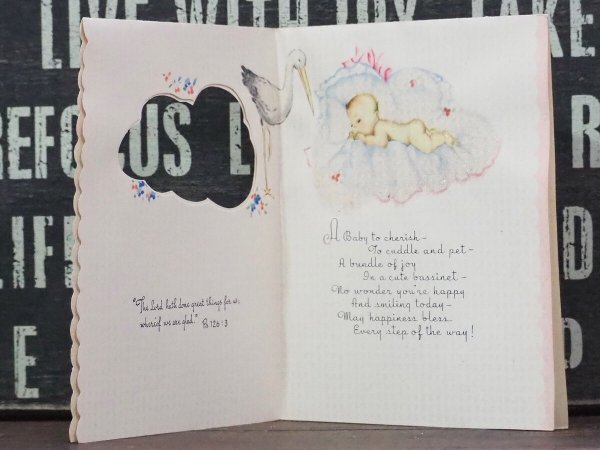 LIVE WITH JOY, TAKE
REFOCUS L
R
LIF
E
"The Lord hath done great things for us;
whereof we are glad." Ps. 126:3
A Baby to cherish—
To cuddle and pet—
A bundle of joy
In a cute bassinet—
No wonder you're happy
And smiling today—
May happiness bless
Every step of the way!